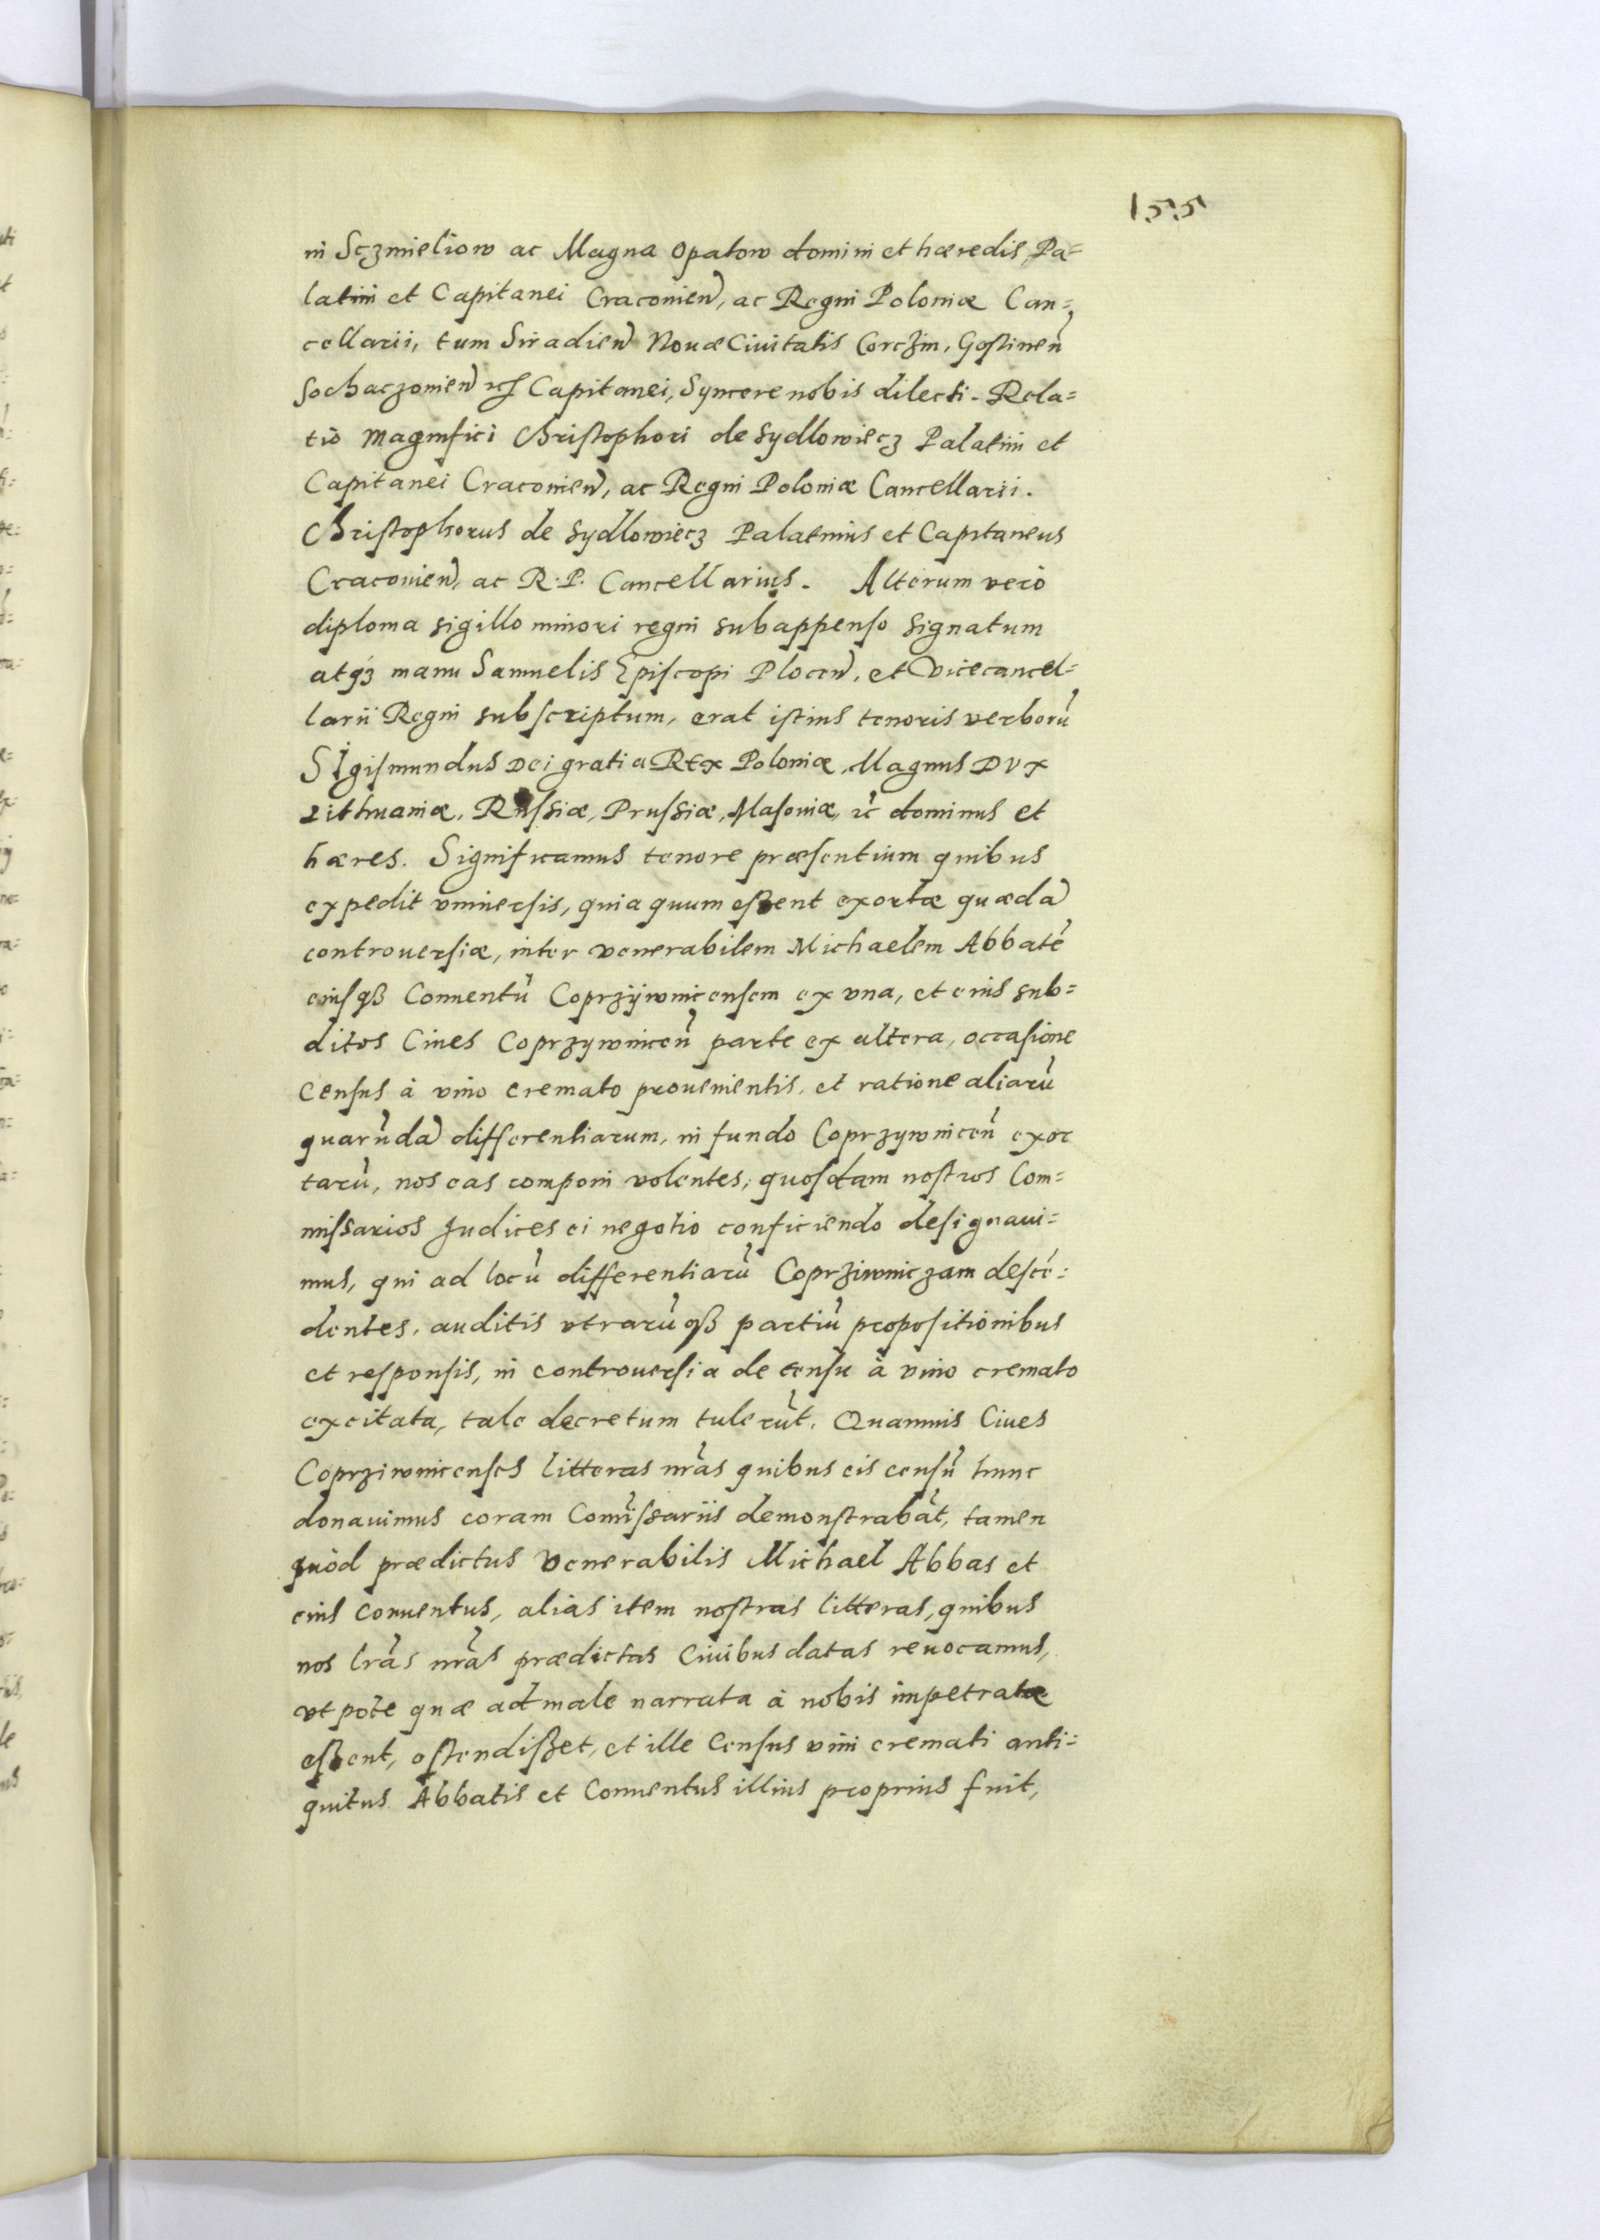 155
in Sczmieliow ac Magna Opatow domini et hæredis, Pa=
latini et Capitanei Cracovien, ac Regni Poloniæ Can=
cellarii, tum Siradien Nouæ Ciuitatis Corczin, Gostinen̉
Sochaczouien Capitanei, Syncere nobis dilecti. Rela=
tiò Magnifici Christophori de Sydlowiecz Palatini et
Capitanei Cracouien, ac Regni Poloniæ Cancellarii.
Christophorus de Sydlowiecz Palatinus et Capitaneus
Cracouien, ac R. P. Cancellarius. Alterum verò
diploma sigillo minori regni subappenso signatum
atq3 manu Samuelis Episcopi Plocen, et Vicecancel=
larii Regni subscriptum, erat istius tenoris verborủ
Sigismundus Dei gratia Rex Poloniæ, Magnus Dux
Lithuaniæ, Russiæ, Prussiæ, Masouiæ, ꝛc̉ dominus et
hæres. Significamus tenore præsentium quibus
expedit vniuersis, quia quum essent exortæ quædã
controuersiæ, inter venerabilem Michaelem Abbatẻ
eiusqß Conuentủ Coprzÿwnicensem ex vna, et eius sub=
ditos Ciues Coprzywnicen̉ parte ex altera, occasione
Census à vino cremato prouenientis, et ratione aliarủ
quarủdã differentiarum, in fundo Coprzywnicen̉ exor
tarủ, nos eas componi volentes, quosdam nostros Com=
missarios Judices ei negotio conficiendo designaui=
mus, qui ad locủ differentiarủ Coprziwniczam descẻ=
dentes, auditis vtrarủqß partiủ propositionibus
et responsis, in controuersia de censu à vino cremato
excitata, tale decretum tulerủt. Quamuis Ciues
Coprziwnicenses litteras nrảs quibus eis censủ hunc
donauimus coram Com̉issariis demonstrabảt, tamen
quòd prædictus Venerabilis Michael Abbas et
eius conuentus, alias item nostras litteras, quibus
nos lrảs nrảs prædictas Ciuibus datas reuocamus,
vt pote quæ ad male narrata à nobis impetratæ
essent, ostendißet, et ille Census vini cremati anti=
quitus Abbatis et Conuentus illius proprius fuit,